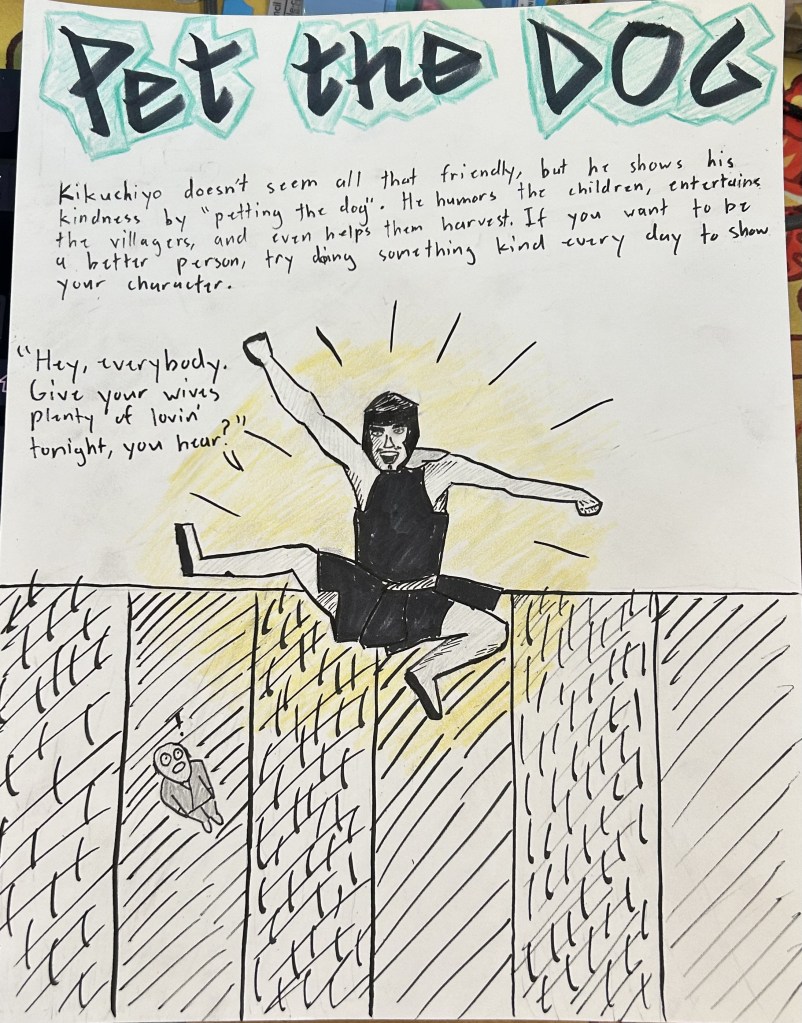 Pet the DOG
Kikuchiyo doesn't seem all that friendly, but he shows his
kindness by "petting the dog". He humors the children, entertains
the villagers, and even helps them harvest. If you want to be
a better person, try doing something kind every day to show
your character.
"Hey, everybody.
Give your wives
plenty of lovin'
tonight, you hear?"
!